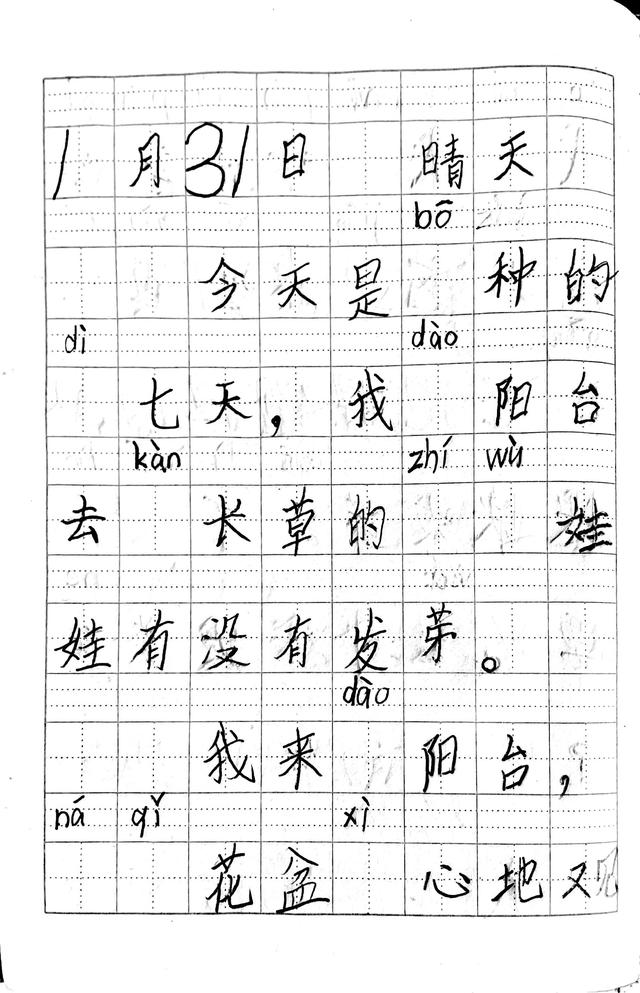 1月31日 晴天
bō
今天是 种的
dì dào
七天，我 阳台
kàn zhí wù
去 长草的 娃
娃有没有发苐。
dào
我来 阳台，
ná qǐ xì
花盆 心地又